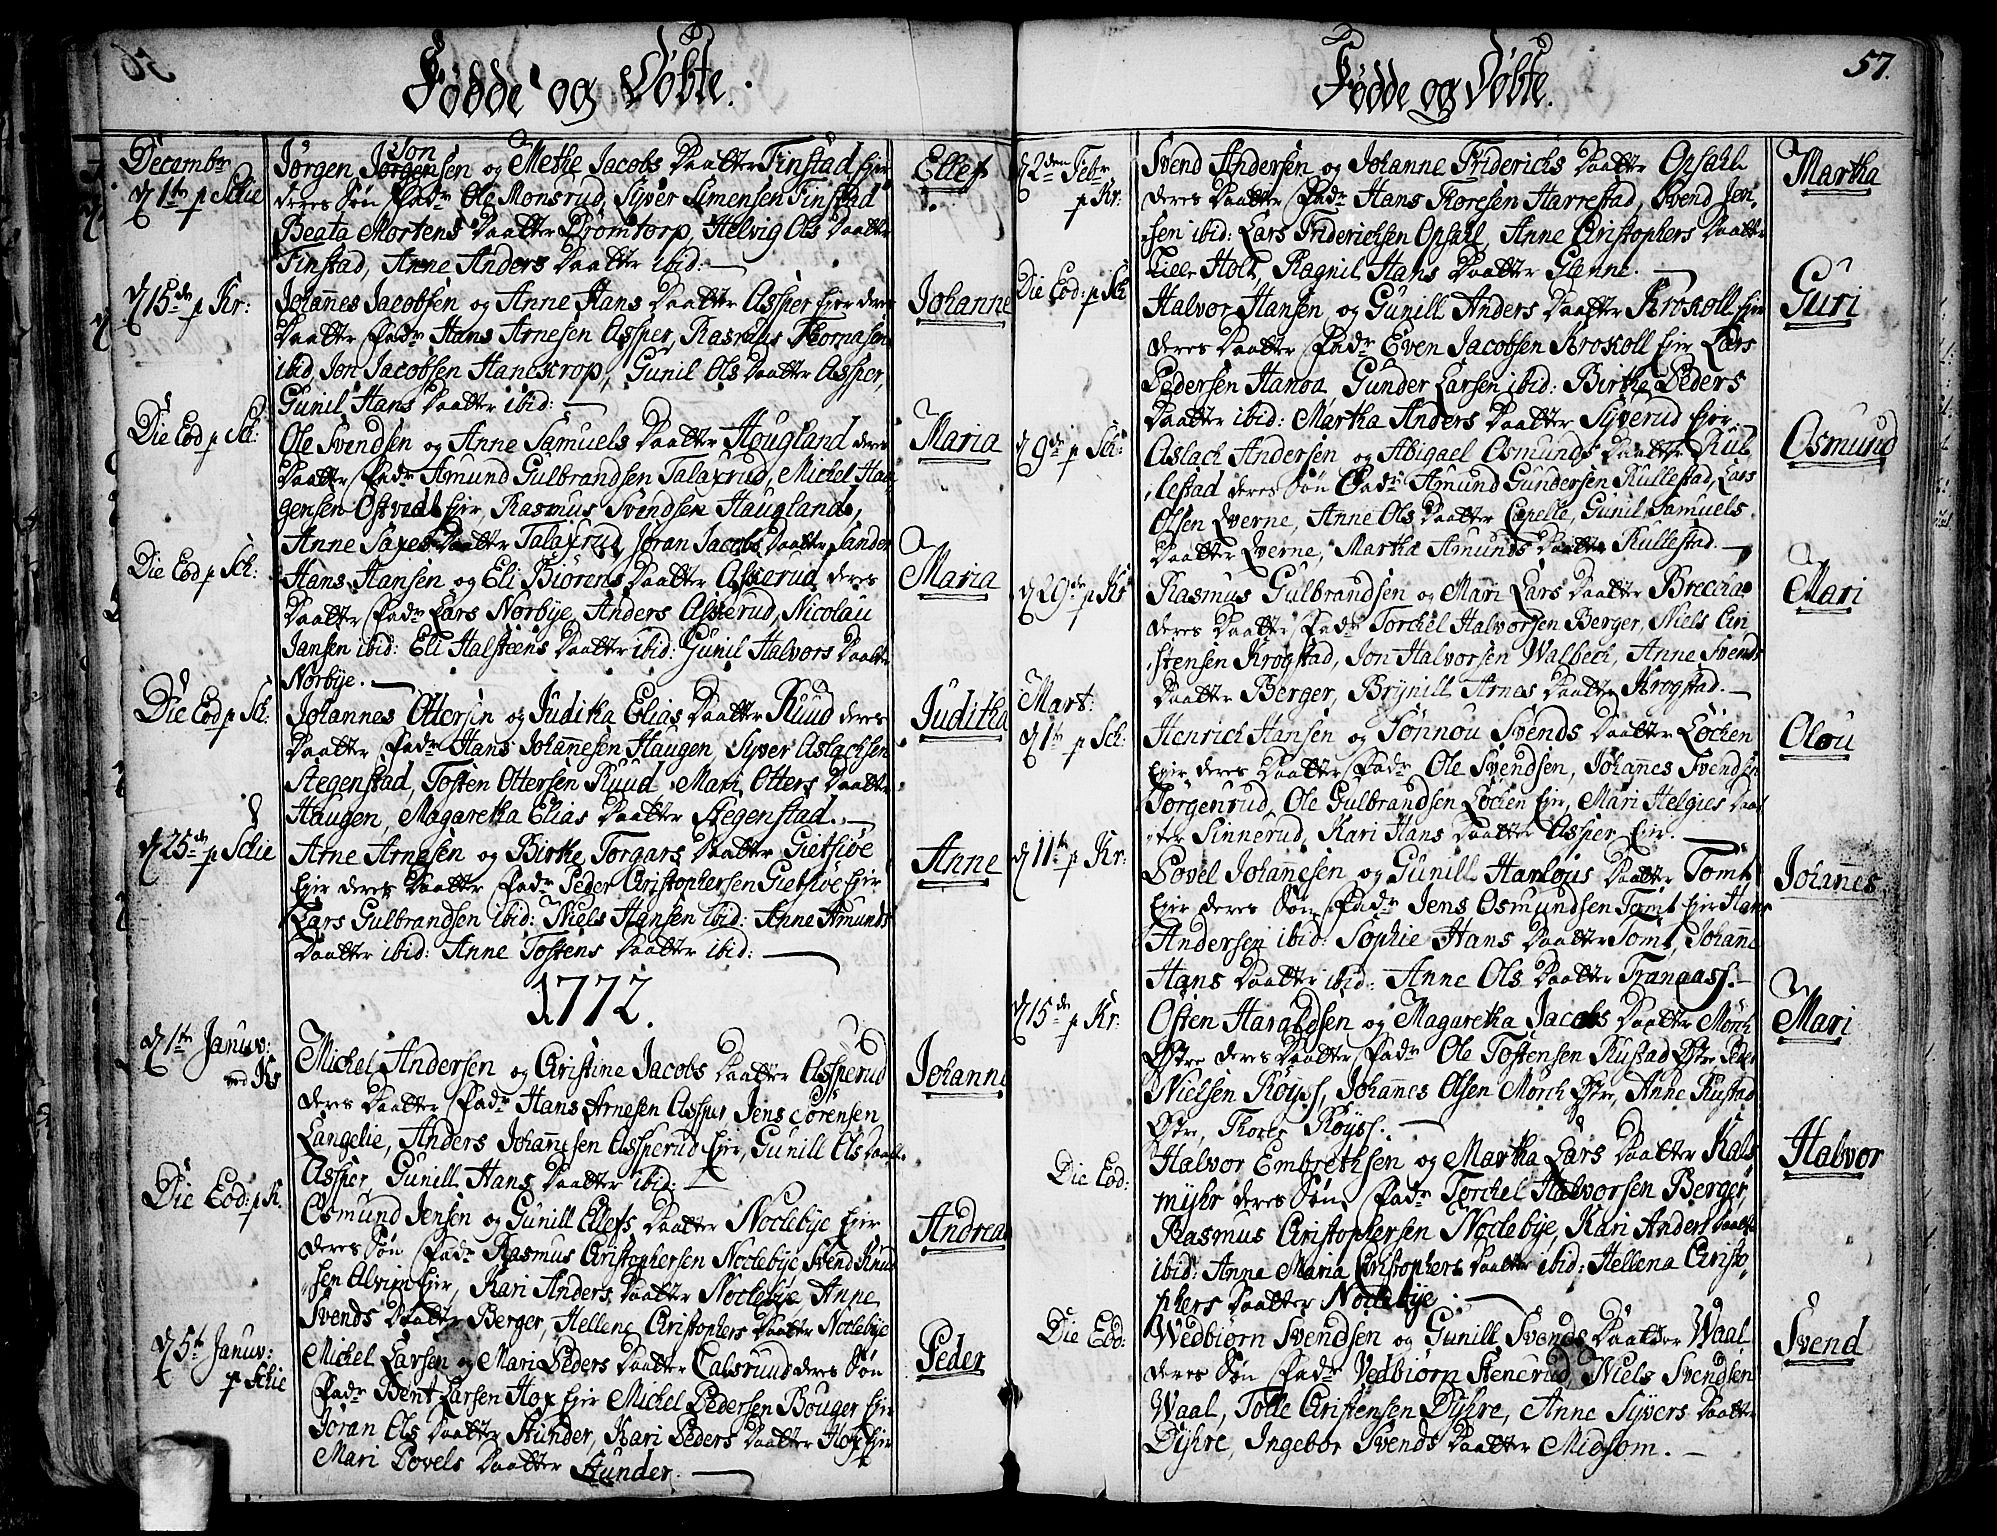 56
Fødde og Døbte.
Decembr
d 1ste p Skie
Jørgen Jørgensen Jon og Methe Jacobs Daatter Finstad Ejer
deres Søn Fadr Ole Monsrud, Syver Simensen Finstad
Beata Mortens Daatter Drømtorp, Helvig Ols Daatter
Finstad, Anne Anders Daatter ibid:
Ellef
d 15de p Kr:
Johannes Jacobsen og Anne Hans Daatter Assper Ejer deres
Daatter Fadr Hans Arnesen Assper, Rasmus Thomasen
ibid Jon Jacobsen Hanekrop, Gunil Ols Daatter Assper,
Gunil Hans Daatter ibid:
Johanne
Die Eod p Sk:
Ole Svendsen og Anne Samuels Daatter Hougland deres
Daatter Fadr Amund Gulbrandsen Talaxrud, Michel Haa
gensen Østvedt Ejer, Rasmus Svendsen Haugland,
Anne Saxes Daatter Talaxrud, Jøran Jacobs Daatter Sander
Maria
Die Eod p Sch:
Hans Hansen og Eli Biørens Daatter Assierud deres
Daatter Fadr Lars Norbye, Anders Assierud, Nicolau
Jansen ibid: Eli Halsteens Daatter ibid: Gunil Halvors Daatter
Norbye.
Maria
Die Eod p Sch:
Johannes Ottersen og Juditha Elias Daatter Ruud deres
Daatter Fadr Hans Johannesen Haugen, Syver Aslachsen
Stegenstad, Tosten Ottersen Ruud, Mari Otters Daatter
Haugen, Magaretha Elias Daatter Stegenstad.
Juditha
d 25de p Skie
Arne Arnesen og Birthe Torgars Daatter Gietsiøe
Ejer deres Daatter Fadr Peder Christophersen Gietsiøe Ejer
Lars Gulbrandsen ibid: Niels Hansen ibid: Anne Amunds
Daatter ibid: Anne Tostens Daatter ibid:
Anne
1772.
d 1ste Januv:
ved Ks
Michel Andersen og Christine Jacobs Daatter Assperud
deres Daatter Fadr Hans Arnesen Assper Jens Sørensen
Langelie, Anders Johannesen Assperud Ejer, Gunill Ols Daatter
Assper, Gunill Hans Daatter ibid:
Johanne
Die Eod: p K.
Osmund Jensen og Gunill Ellefs Daatter Noclebye Ejer
deres Søn Fadr Rasmus Christophersen Noclebye Svend Knud
sen Alvim Ejer, Kari Anders Daatter Noclebye, Anne
Svends Daatter Berger, Hellene Christophers Daatter Noclebye
Andreas
d 5te Januv:
p Skie
Michel Larsen og Mari Peders Daatter Calsrund deres Søn
Fadr Bent Larsen Hox Ejer Michel Pedersen Bouger Ejer
Jøran Ols Daatter Stunder, Kari Peders Daatter Hox Ejer
Mari Povels Daatter Stunder.
Peder
57.
Fødde og Døbte.
d 2den Febr
p Kr:
Svend Andersen og Johanne Friderichs Daatter Opsahl
deres Daatter Fadr Hans Toresen Harrestad, Svend Jen
sen ibid: Lars Friderichsen Opsahl, Anne Christophers Daatter
Lille Holt, Ragnil Hans Daatter Glenne.
Martha
Die Eod: p Sk
Halvor Hansen og Gunill Anders Daatter Krokoll Ejer
deres Daatter Fadr Even Jacobsen Krokoll Ejer Lars
Pedersen Hanoa, Gunder Larsen ibid: Birthe Peders
Daatter ibid: Martha Anders Daatter Syverud Ejer
Guri
d 9de p Sk:
Aslach Andersen og Abigael Osmunds Daatter Kul
lestad deres Søn Fadr Amund Gundersen Kullestad, Lars
Olsen Qverne, Anne Ols Daatter Capelle, Gunil Samuels
Daatter Qverne, Martha Amunds Daatter Kullestad.
Osmund
d 29de p Ks
Rasmus Gulbrandsen og Mari Lars Daatter Breckaa
deres Daatter Fadr Torchel Halvorsen Berger, Niels Cri
stensen Krogstad, Jon Halvorsen Walbech, Anne Svends
Daatter Berger, Brynill Arnes Daatter Krogstad.
Mari
Mart:
d 1ste p Sch:
Henrich Hansen og Tønnou Svends Daatter Løchen
Ejer deres Daatter Fadr Ole Svendsen, Johannes Svendsen
Torgenrud, Ole Gulbrandsen Løchen Ejer, Mari Helgies Daat
ter Sinnerud, Kari Hans Daatter Assper Ejer.
Olou
d 11te p Kr:
Povel Johannesen og Gunill Hanlous Daatter Tomt
Ejer deres Søn Fadr Jens Osmundsen Tomt Ejer Hans
Andersen ibid: Sophie Hans Daatter Tomt, Johanne
Hans Daatter ibid: Anne Ols Daatter Tranaass.
Johannes
d 15de p Kr:
Østen Haraldsen og Magaretha Jacobs Daatter Mørch
Østre deres Daatter Fadr Ole Tostensen Rustad Østre
Nielsen Røyss, Johannes Olsen Mørch Østre, Anne Rustad
Østre, Thores Røyss.
Mari
Die Eod:
Halvor Embrethsen og Martha Lars Daatter Kals
myhr deres Søn Fadr Torchel Halvorsen Berger,
Rasmus Christophersen Noclebye, Kari Anders Daatter
ibid: Anne Maria Christophers Daatter ibid: Hellena Christo
phers Daatter Noclebye.
Halvor
Die Eod:
Wedbiørn Svendsen og Gunill Svends Daatter Waal
deres Søn Fadr Vedbiørn Stenerud, Niels Svendsen
Waal, Tolle Christensen Dyhre, Anne Syvers Daatter
Dyhre, Ingebor Svends Daatter Midsom.
Svend